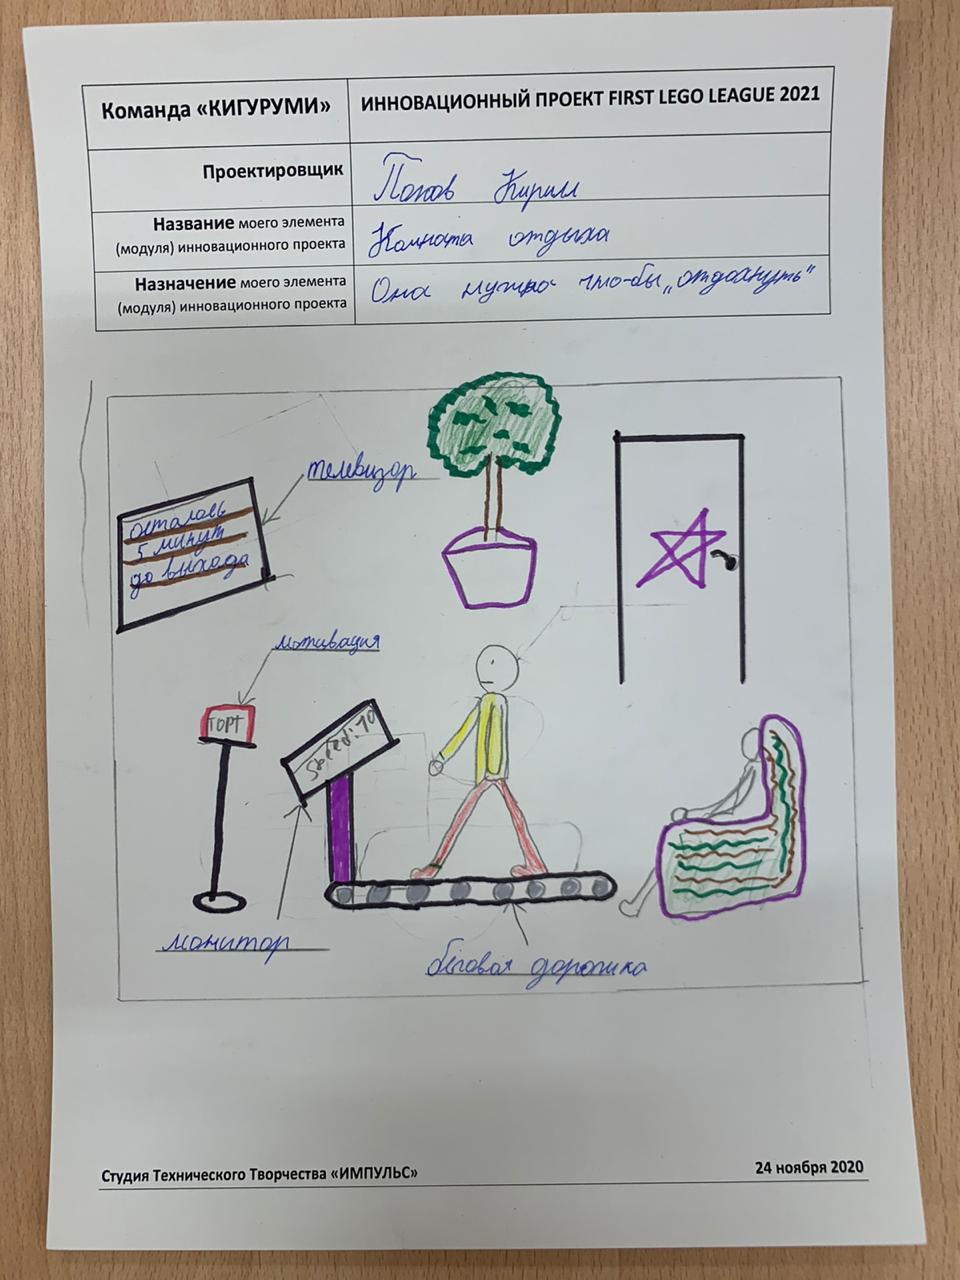 Команда «КИГУРУМИ»
ИННОВАЦИОННЫЙ ПРОЕКТ FIRST LEGO LEAGUE 2021
Проектировщик
Попов Кирилл
Название моего элемента
(модуля) инновационного проекта
Комната отдыха
Назначение моего элемента
(модуля) инновационного проекта
Она нужна что-бы „отдохнуть"
телевизор
осталось
5 минут
до выхода
мотивация
ТОРТ
Speed:10
монитор
беговая дорожка
Студия Технического Творчества «ИМПУЛЬС»
24 ноября 2020